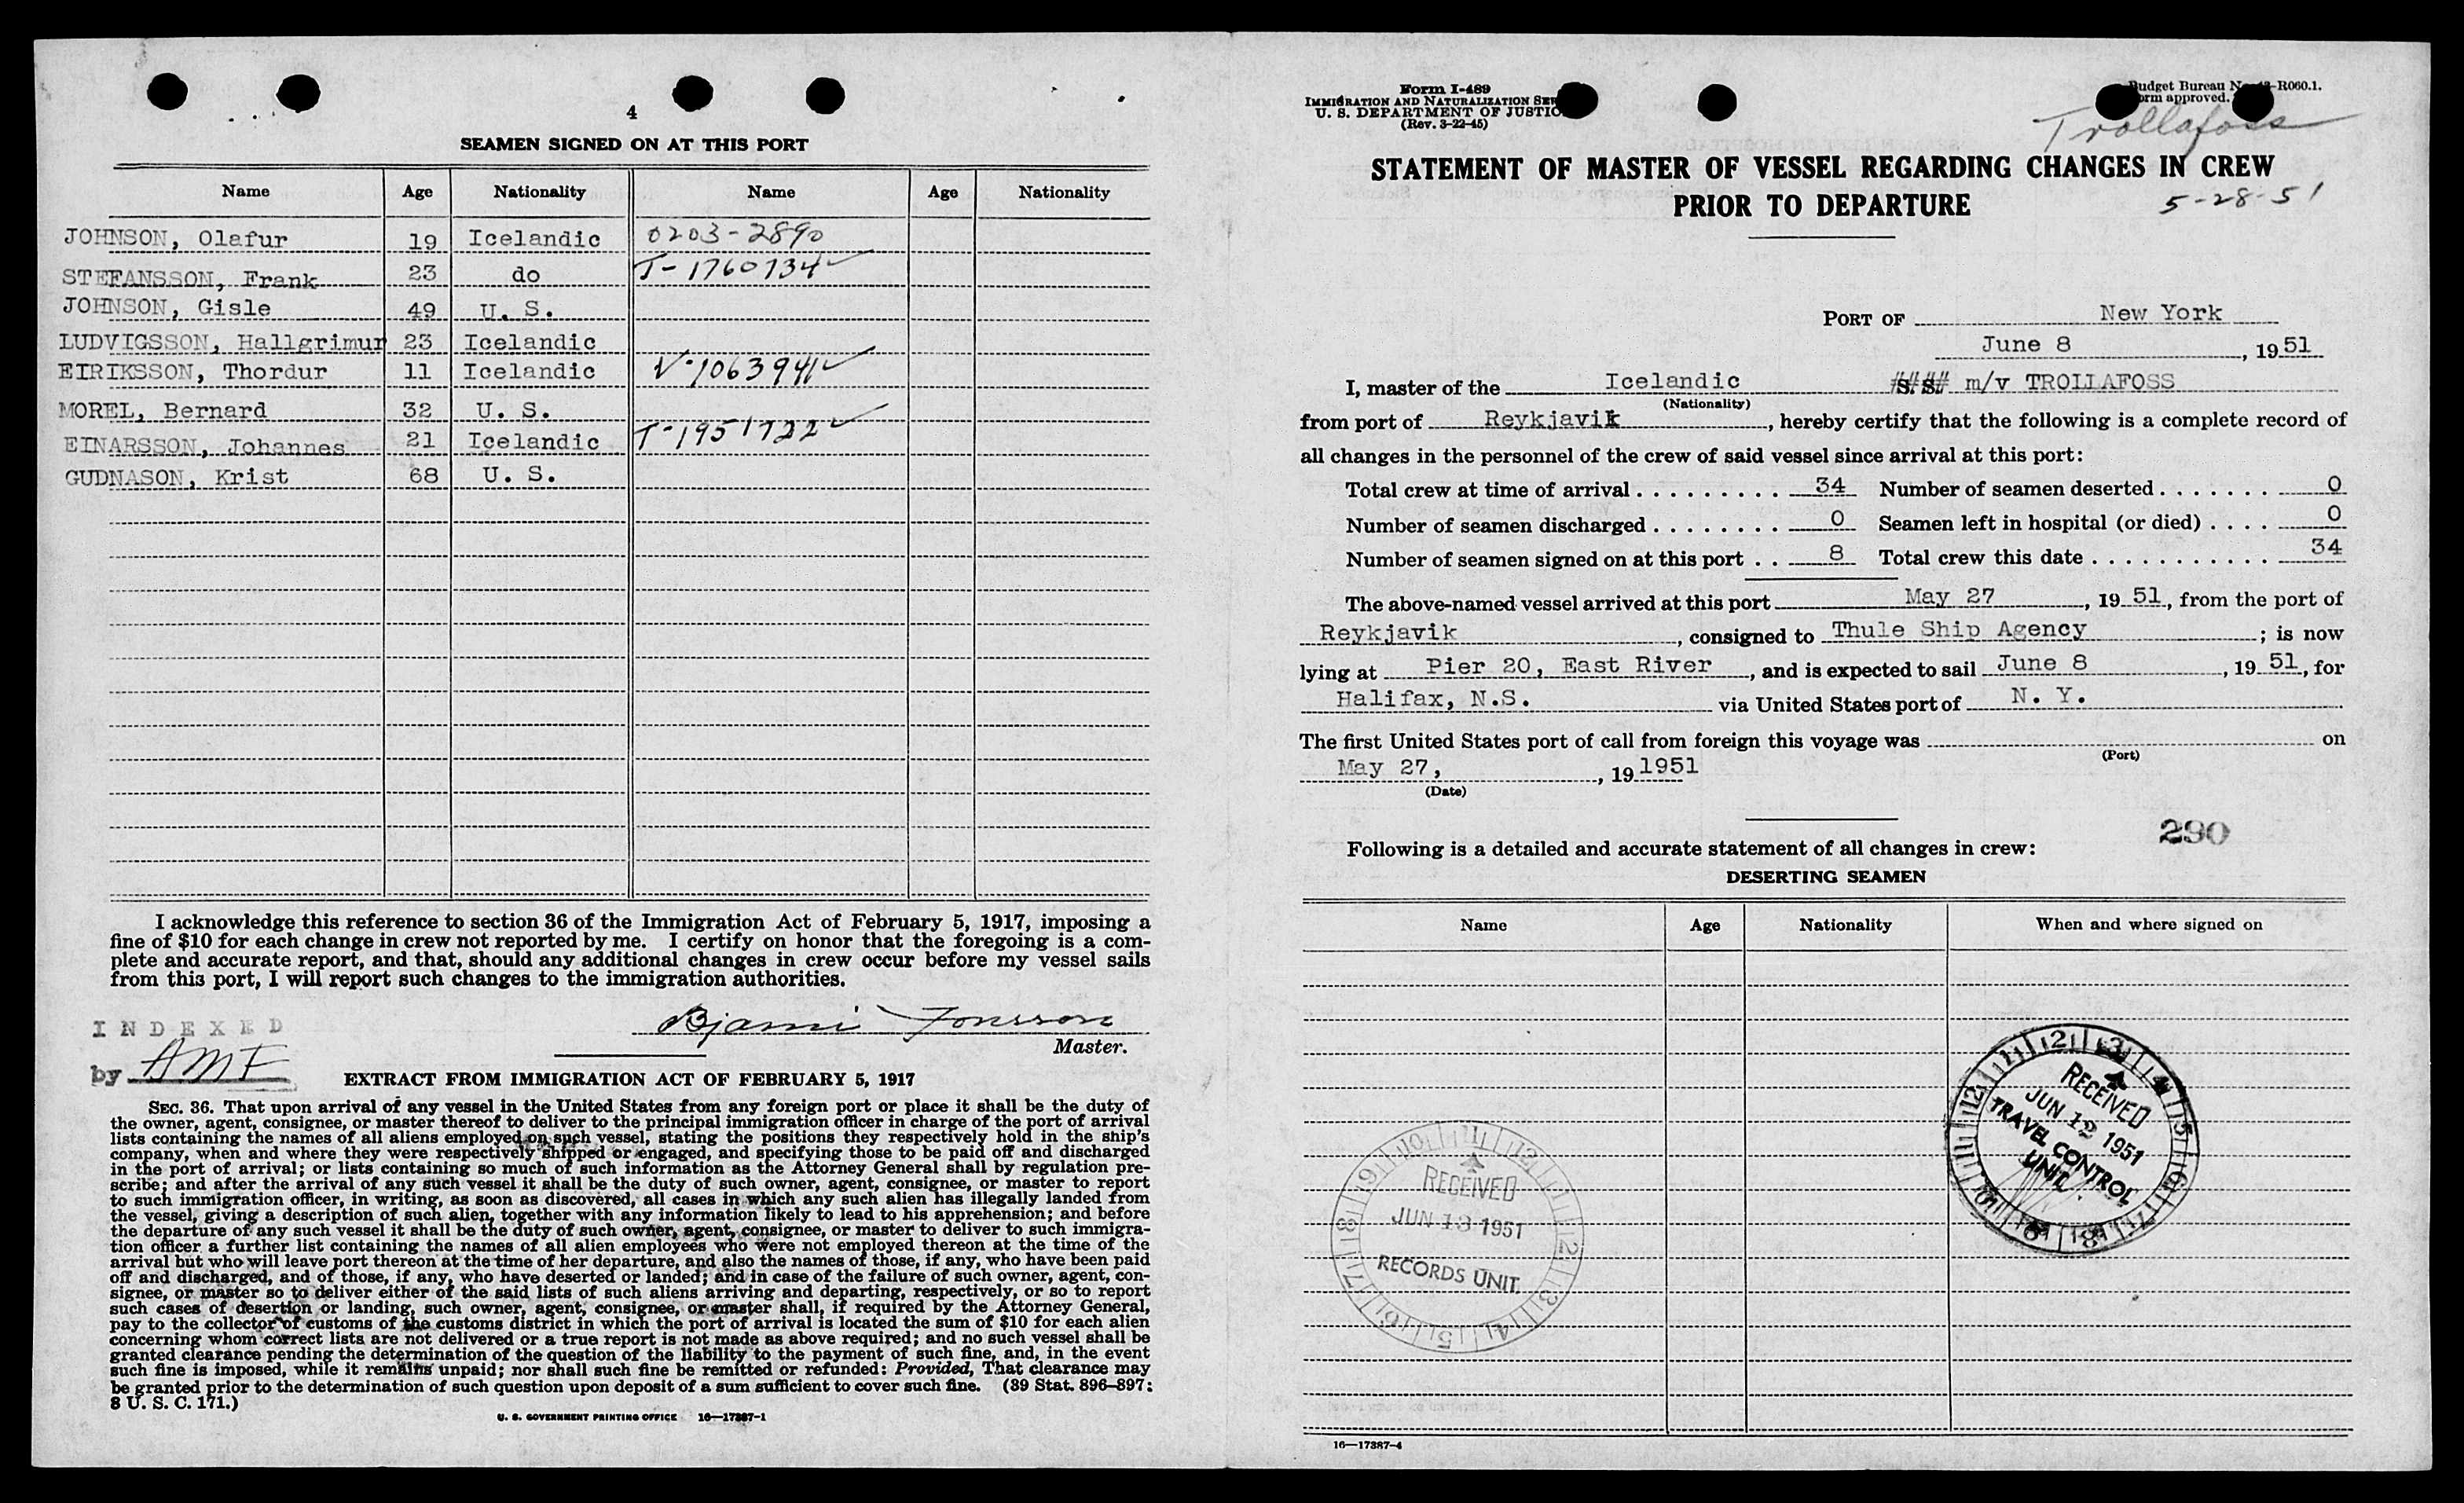 4
SEAMEN SIGNED ON AT THIS PORT
Name Age Nationality Name Age Nationality
JOHNSON, Olafur 19 Icelandic 0203-2890
STEFANSSON, Frank 23 do T-1760734
JOHNSON, Gisle 49 U. S.
LUDVIGSSON, Hallgrimur 23 Icelandic
EIRIKSSON, Thordur 11 Icelandic V-1063941
MOREL, Bernard 32 U. S.
EINARSSON, Johannes 21 Icelandic T-1951722
GUDNASON, Krist 68 U. S.
I acknowledge this reference to section 36 of the Immigration Act of February 5, 1917, imposing a
fine of $10 for each change in crew not reported by me. I certify on honor that the foregoing is a com-
plete and accurate report, and that, should any additional changes in crew occur before my vessel sails
from this port, I will report such changes to the immigration authorities.
Bjarni Jonsson
Master.
INDEXED
by AMF
EXTRACT FROM IMMIGRATION ACT OF FEBRUARY 5, 1917
SEC. 36. That upon arrival of any vessel in the United States from any foreign port or place it shall be the duty of
the owner, agent, consignee, or master thereof to deliver to the principal immigration officer in charge of the port of arrival
lists containing the names of all aliens employed on such vessel, stating the positions they respectively hold in the ship's
company, when and where they were respectively shipped or engaged, and specifying those to be paid off and discharged
in the port of arrival; or lists containing so much of such information as the Attorney General shall by regulation pre-
scribe; and after the arrival of any such vessel it shall be the duty of such owner, agent, consignee, or master to report
to such immigration officer, in writing, as soon as discovered, all cases in which any such alien has illegally landed from
the vessel, giving a description of such alien, together with any information likely to lead to his apprehension; and before
the departure of any such vessel it shall be the duty of such owner, agent, consignee, or master to deliver to such immigra-
tion officer a further list containing the names of all alien employees who were not employed thereon at the time of the
arrival but who will leave port thereon at the time of her departure, and also the names of those, if any, who have been paid
off and discharged, and of those, if any, who have deserted or landed; and in case of the failure of such owner, agent, con-
signee, or master so to deliver either of the said lists of such aliens arriving and departing, respectively, or so to report
such cases of desertion or landing, such owner, agent, consignee, or master shall, if required by the Attorney General,
pay to the collector of customs of the customs district in which the port of arrival is located the sum of $10 for each alien
concerning whom correct lists are not delivered or a true report is not made as above required; and no such vessel shall be
granted clearance pending the determination of the question of the liability to the payment of such fine, and, in the event
such fine is imposed, while it remains unpaid; nor shall such fine be remitted or refunded: Provided, That clearance may
be granted prior to the determination of such question upon deposit of a sum sufficient to cover such fine. (39 Stat. 896-897;
8 U. S. C. 171.)
U. S. GOVERNMENT PRINTING OFFICE 16—17387-1
Form I-489
IMMIGRATION AND NATURALIZATION SER
U. S. DEPARTMENT OF JUSTIC
(Rev. 3-22-45)
Budget Bureau No. -R060.1.
orm approved.
Trollafoss
STATEMENT OF MASTER OF VESSEL REGARDING CHANGES IN CREW
PRIOR TO DEPARTURE
5-28-51
PORT OF New York
June 8, 1951
I, master of the Icelandic S. S. m/v TROLLAFOSS
(Nationality)
from port of Reykjavik, hereby certify that the following is a complete record of
all changes in the personnel of the crew of said vessel since arrival at this port:
Total crew at time of arrival . . . . . . . . . 34 Number of seamen deserted . . . . . . . 0
Number of seamen discharged . . . . . . . . 0 Seamen left in hospital (or died) . . . . 0
Number of seamen signed on at this port . . 8 Total crew this date . . . . . . . . . . . 34
The above-named vessel arrived at this port May 27, 1951, from the port of
Reykjavik, consigned to Thule Ship Agency; is now
lying at Pier 20, East River, and is expected to sail June 8, 1951, for
Halifax, N.S. via United States port of N. Y.
The first United States port of call from foreign this voyage was on
(Port)
May 27, , 19 1951
(Date)
290
Following is a detailed and accurate statement of all changes in crew:
DESERTING SEAMEN
Name Age Nationality When and where signed on
RECEIVED
JUN 12 1951
TRAVEL CONTROL
UNIT.
RECEIVED
JUN 13 1951
RECORDS UNIT.
16—17387-4